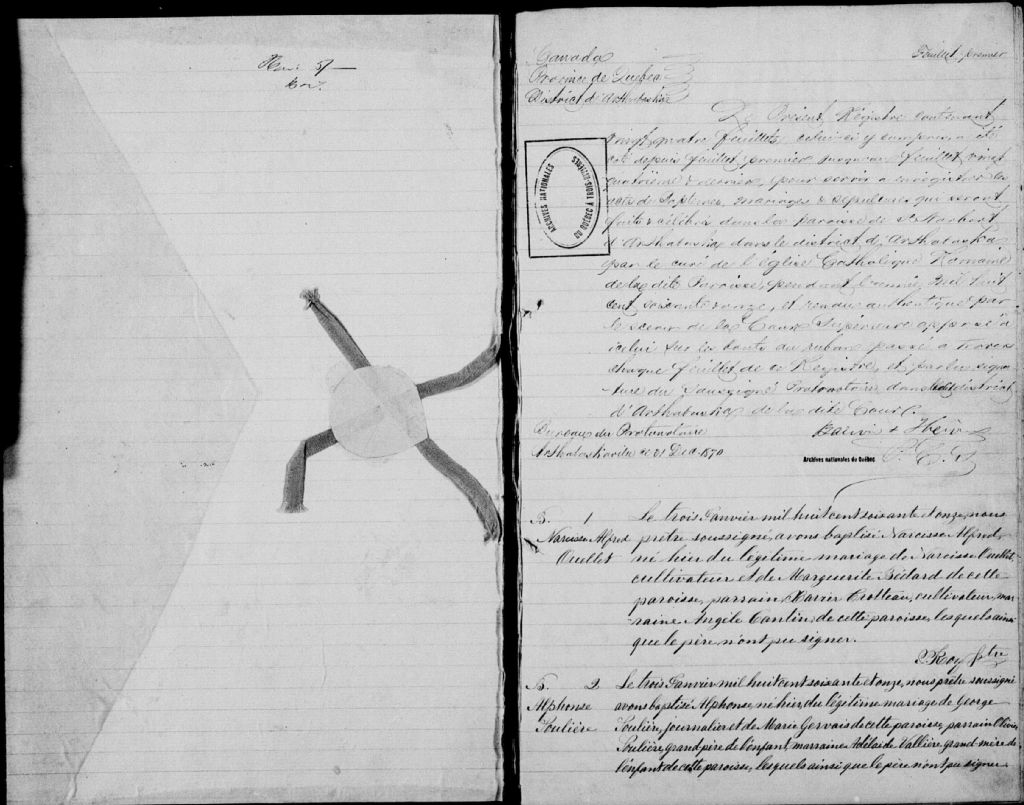 Canada
Feuillet premier
Province de Québec
District d'Arthabaska
Le Présent Régistre contenant
vingt quatre feuillets, celui ci y compris, a été
coté depuis feuillet premier jusqu'au feuillet vingt
quatrième & dernier, pour servir a enrégistrer les
actes de Baptêmes, Mariages & Sépultures qui seront
faits & célébrés dans la paroisse de St Norbert
d'Arthabaska dans le district d'Arthabaska
par le curé de l'église Catholique Romaine
de la dite Paroisse, pendant l'année, Mil huit
cent soixante & onze, et rendu authentique par
le sceau de la Cour Supérieure apposé à
icelui sur les bouts du ruban passé a travers
chaque feuillet de ce Registre, et par la signa-
ture du Soussigné Protonotaire dans le dit district
d'Arthabaska de la dite Cour.
Bureau du Protonotaire
Arthabaskaville ce 21 Dec 1870
P. C. S.
ARCHIVES NATIONALES
DU QUÉBEC À TROIS-RIVIÈRES
Archives nationales du Québec
B. 1
Narcisse Alfred
Ouellet
Le trois Janvier mil huit cent soixante et onze, nous
prêtre soussigné, avons baptisé Narcisse Alfred,
né hier du légitime mariage de Narcisse Ouellet,
cultivateur et de Marguerite Bédard de cette
paroisse, parrain Xavier Trotteau, cultivateur, mar-
raine Angèle Cantin, de cette paroisse, lesquels ainsi
que le père n'ont pu signer.
P. Roy Ptre
B. 2
Alphonse
Soulière
Le trois Janvier mil huit cent soixante et onze, nous prêtre soussigné
avons baptisé Alphonse, né hier du légitime mariage de George
Soulière, journalier et de Marie Gervais de cette paroisse, parrain Olivier
Soulière, grand-père de l'enfant, marraine Adélaïde Vallière grand-mère de
l'enfant de cette paroisse, lesquels ainsi que le père n'ont pu signer.